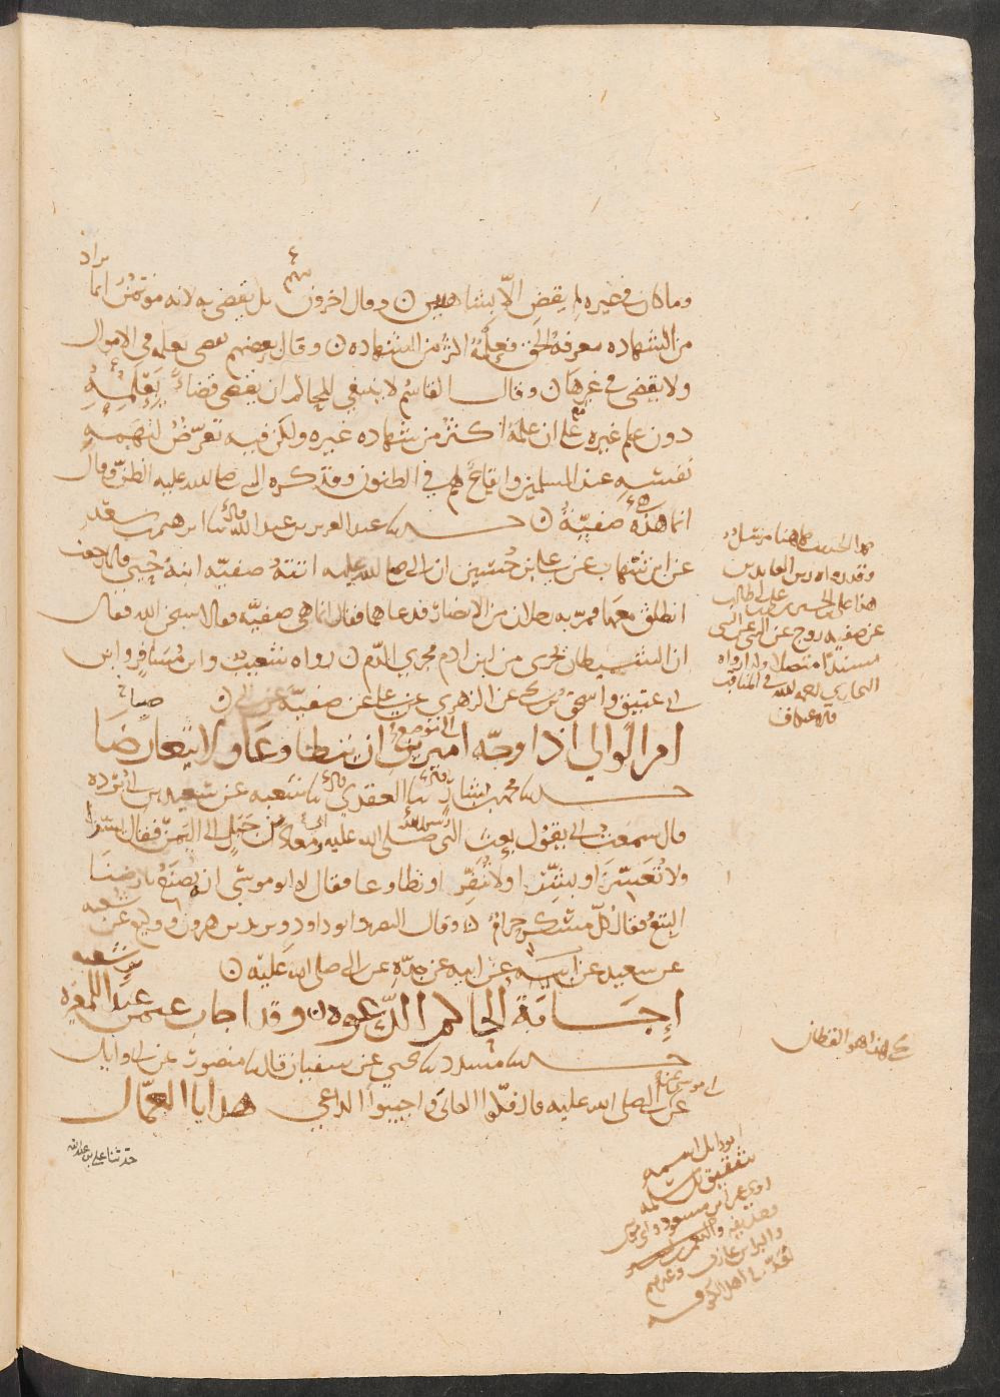 وما كان في غيره لم يقض الا بشاهدين ن وقال اخرون منهم بل يقضي به لانه موتمن انما يراد
من الشهاده معرفة الحق فعلمه اكثر من الشهاده ن وقال بعضهم يقضي بعلمه في الاموال
ولا يقضي في غيرها ن وقال القاسم لا ينبغي للحاكم ان يقضي قضاء بعلمه
دون علم غيره مع ان علمه اكثر من شهاده غيره ولكن فيه تعرض لتهمة
نفسه عند المسلمين وايقاع لهم في الظنون وقد كره النبي صلى الله عليه الظن وقال
انما هذه صفية ن حدثنا عبد العزيز بن عبد الله قال نا ابرهيم بن سعد
عن ابن شهاب عن علي بن حسين ان النبي صلى الله عليه اتته صفيه ابنة حيي فلما رجعت
انطلق معها فمر به رجلان من الانصار فدعاهما فقال انما هي صفيه فقالا سبحن الله فقال
ان الشيطان يجري من ابن ادم مجرى الدم ن رواه شعيب وابن مسافر وابن
ابي عتيق واسحق بن يحيى عن الزهري عن علي عن صفية عن النبي ن
امر الوالي اذا وجه اميرين الى موضع ان يتطاوعا ولا يتعاصيا
حدثنا محمد بن بشار قال نا العقدي قال نا شعبه عن سعيد بن ابي برده
قال سمعت ابي يقول بعث النبي صلى الله عليه ابي ومعاذ بن جبل الى اليمن فقال يسرا
ولا تعسرا وبشرا ولا تنفرا وتطاوعا فقال له ابو موسى انه يصنع بارضنا
البتع فقال كل مسكر حرام ن وقال النضر وابو داود ويزيد بن هرون ووكيع عن شعبه
عن سعيد عن ابيه عن جده عن النبي صلى الله عليه ن
اجابة الحاكم الدعوه ن وقد اجاب عثمن عبدا للمغيره بن شعبه
حدثنا مسدد نا يحيى عن سفيان قال نا منصور عن ابي وايل
عن ابي موسى عن النبي صلى الله عليه قال فكوا العاني واجيبوا الداعي هدايا العمال
حدثنا علي بن عبد الله
هذا الحديث هاهنا مرسل
وقد رواه زين العابدين
هذا علي بن الحسين بن علي بن ابي طالب
عن صفيه زوج النبي عن النبي
مسندا متصلا رواه
البخاري رحمه الله في
يحيى هذا هو القطان
ابو وايل اسمه
شقيق بن سلمه
روى عن ابن مسعود وابي موسى
وحذيفه
والبراء بن عازب وغيرهم
يعد في اهل الكوفه